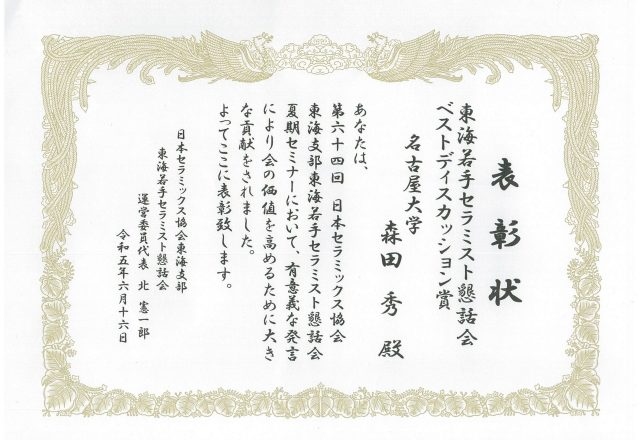 表彰状
東海若手セラミスト懇話会
ベストディスカッション賞
名古屋大学
森田 秀 殿
あなたは、
第六十四回 日本セラミックス協会
東海支部東海若手セラミスト懇話会
夏期セミナーにおいて、有意義な発言
により会の価値を高めるために大き
な貢献をされました。
よってここに表彰致します。
日本セラミックス協会東海支部
東海若手セラミスト懇話会
運営委員代表 北 憲一郎
令和五年六月十六日